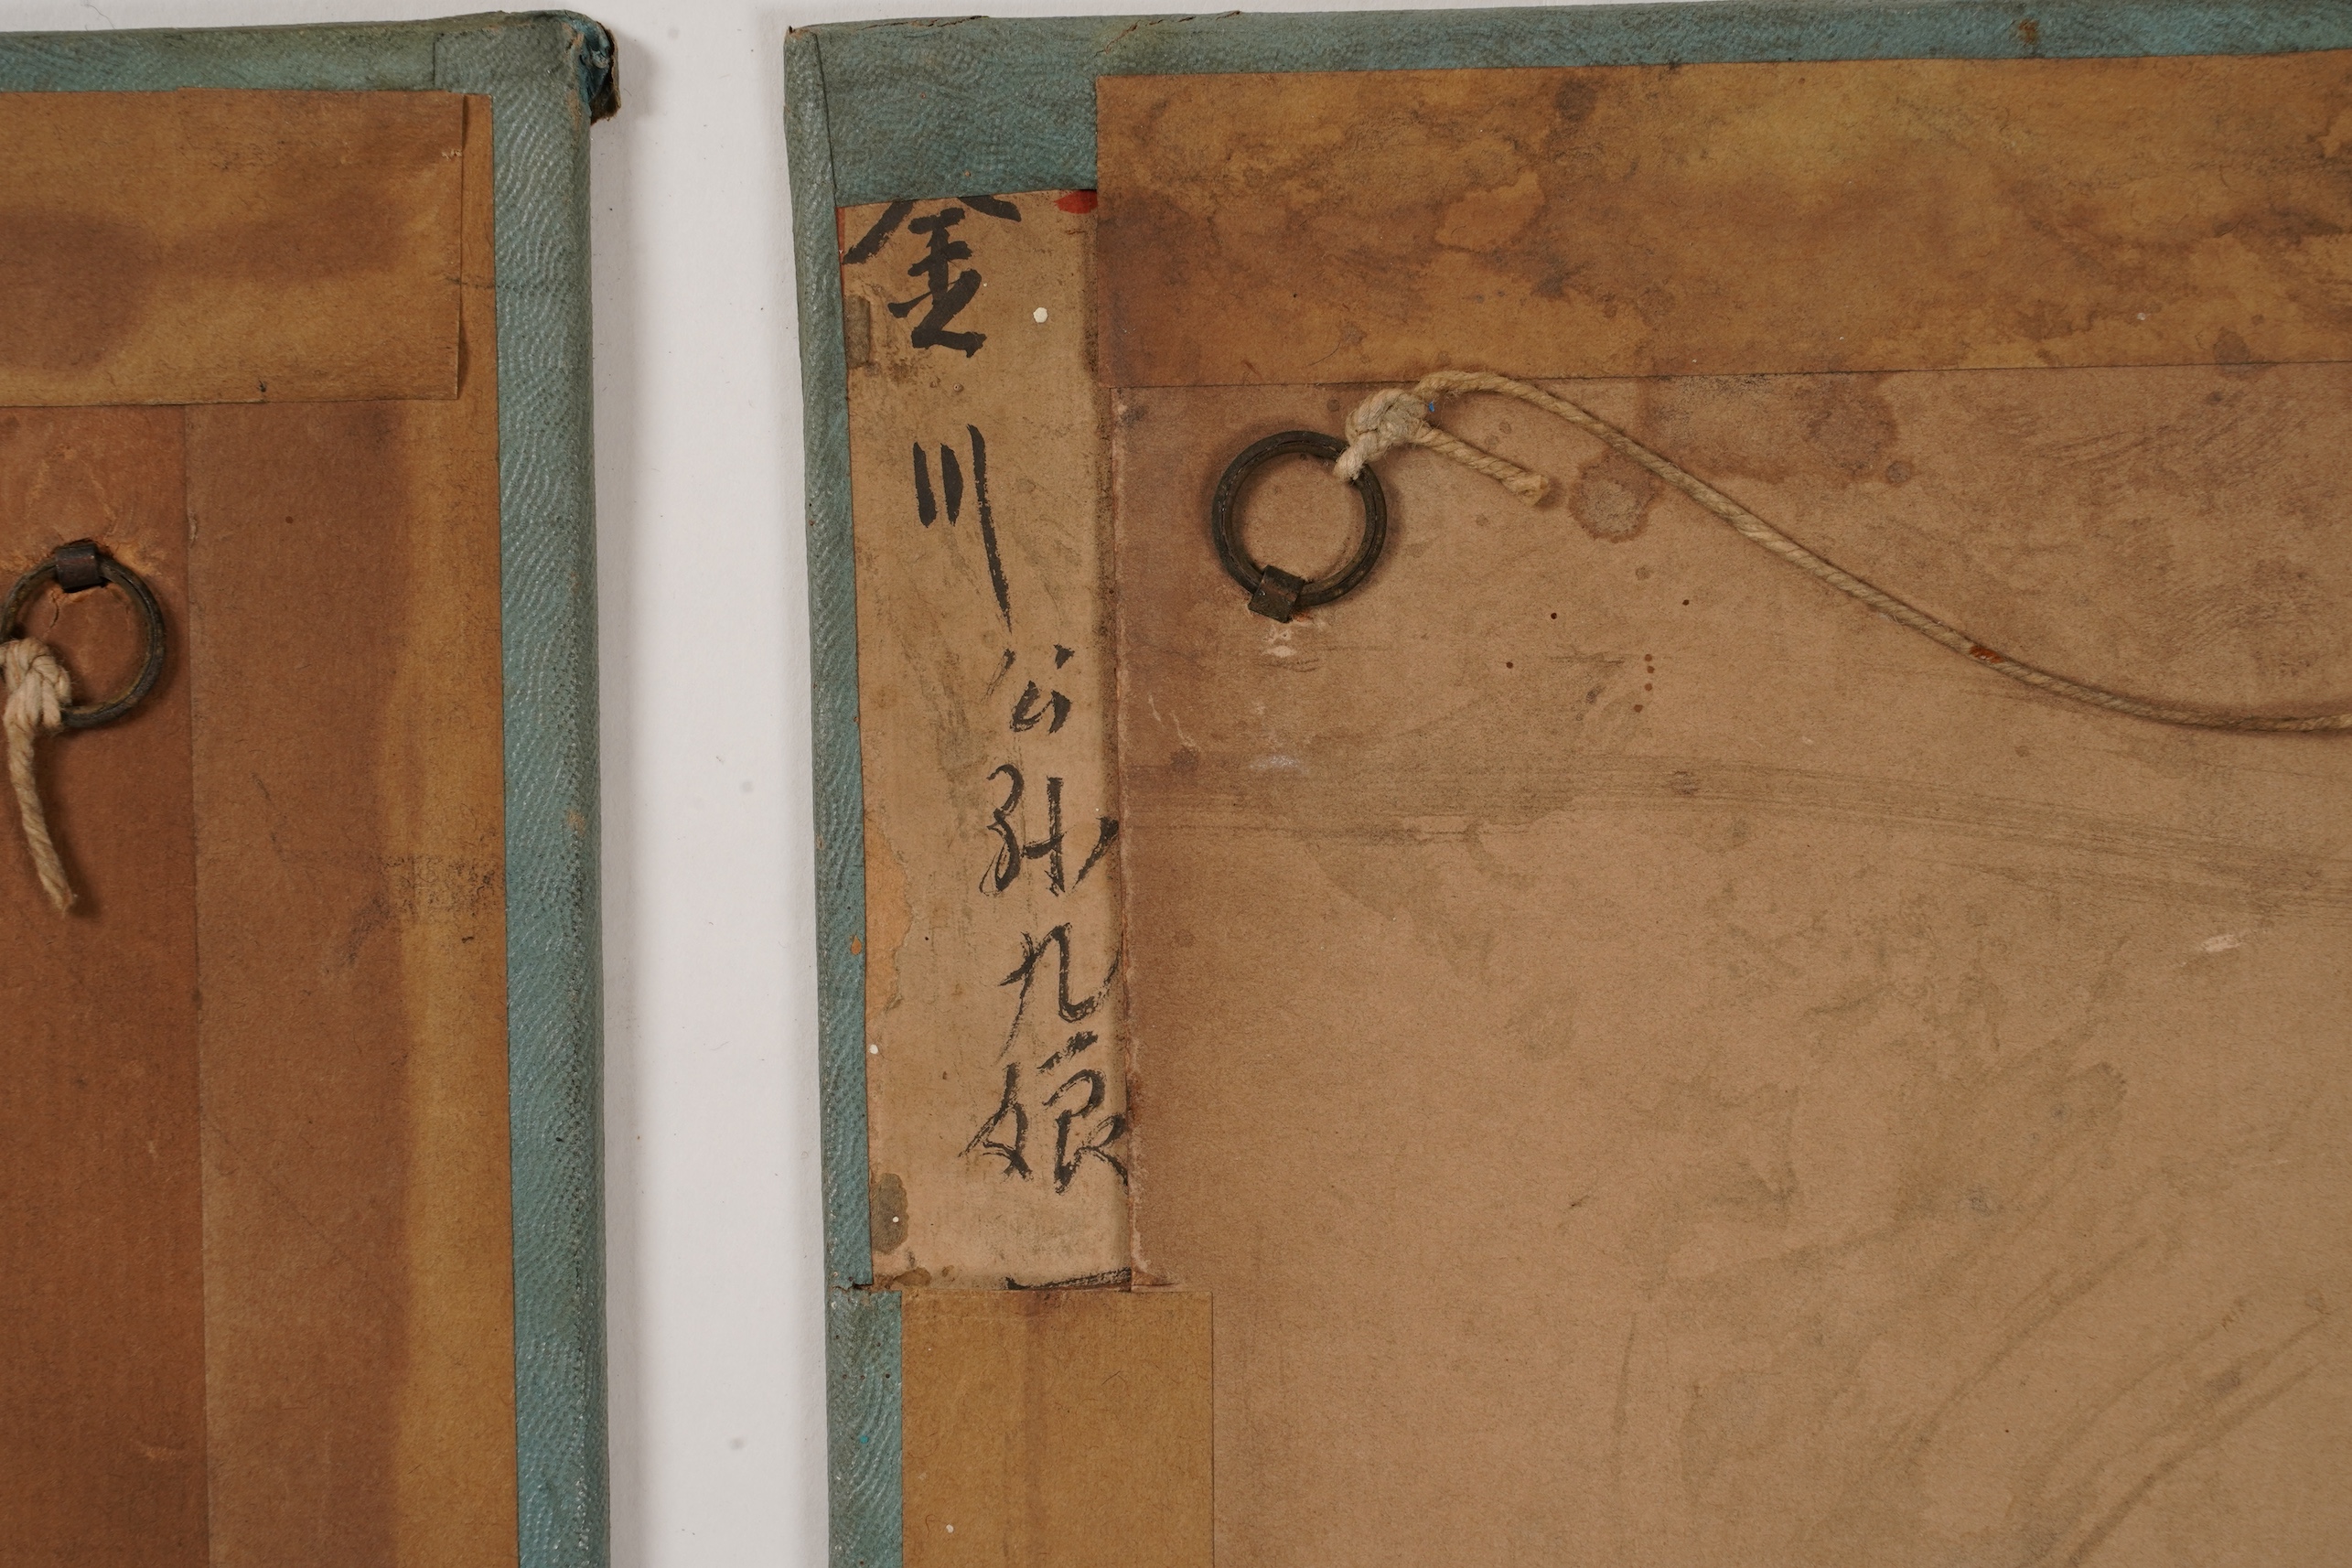 金川公孙九娘